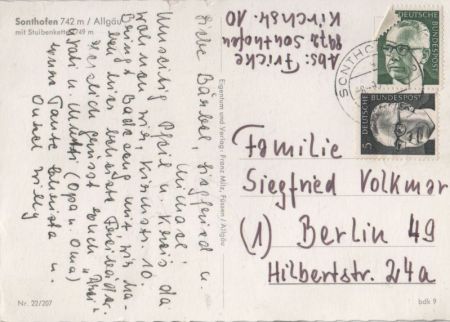 Sonthofen 742 m / Allgäu
mit Stuibenkette 1749 m
Abs: Fricke
8972 Sonthofen
Kirchstr. 10
Liebe Bärbel, Siegfried u.
Michael!
Pfeil u. Kreis da
wohnen wir Kirchstr. 10.
Bring Badezeug mit, wir ha-
ben hier
herzlich grüsst Euch
u. Mutti (Opa u. Oma)
Tante u.
Onkel Willy
Eigentum und Verlag: Franz Milz, Füssen / Allgäu
SONTHO
DEUTSCHE BUNDESPOST
5
DEUTSCHE BUNDESPOST
Familie
Siegfried Volkmar
(1) Berlin 49
Hilbertstr. 24a
Nr. 22/207
bdk 9